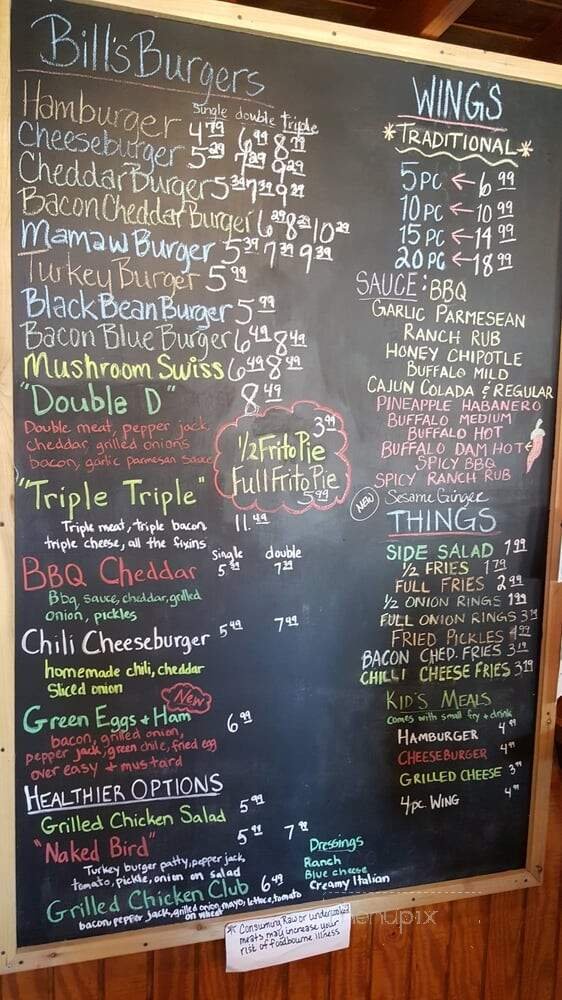 Bill's Burgers
single double triple
Hamburger 4.79 6.99 8.79
Cheeseburger 5.29 7.29 9.29
Cheddar Burger 5.39 7.39 9.39
Bacon Cheddar Burger 6.29 8.29 10.29
Mamaw Burger 5.39 7.39 9.39
Turkey Burger 5.99
Black Bean Burger 5.99
Bacon Blue Burger 6.49 8.49
Mushroom Swiss 6.49 8.49
"Double D" 8.49
Double meat, pepper jack,
cheddar, grilled onions
bacon, garlic parmesan sauce
3.99
1/2 Frito Pie
Full Frito Pie
5.99
"Triple Triple" 11.49
Triple meat, triple bacon
triple cheese, all the fixins
single double
BBQ Cheddar 5 7
Bbq sauce, cheddar, grilled
onion, pickles
Chili Cheeseburger 5.49 7.49
homemade chili, cheddar
Sliced onion
New
Green Eggs + Ham 6.99
bacon, grilled onion,
pepper jack, green chile, fried egg
over easy + mustard
HEALTHIER OPTIONS
Grilled Chicken Salad 5.99
"Naked Bird" 5.99 7.99
Turkey burger patty, pepper jack,
tomato, pickle, onion on salad
Grilled Chicken Club 6.49
bacon, pepper jack, grilled onion, mayo, lettuce, tomato
on wheat
Dressings
Ranch
Blue cheese
Creamy Italian
WINGS
*TRADITIONAL*
5 PC ← 6.99
10 PC ← 10.99
15 PC ← 14.99
20 PC ← 18.99
SAUCE: BBQ
GARLIC PARMESEAN
RANCH RUB
HONEY CHIPOTLE
BUFFALO MILD
CAJUN COLADA & REGULAR
PINEAPPLE HABANERO
BUFFALO MEDIUM
BUFFALO HOT
BUFFALO DAM HOT
SPICY BBQ
SPICY RANCH RUB
NEW Sesame Ginger
THINGS
SIDE SALAD 1.99
1/2 FRIES 1.79
FULL FRIES 2.99
1/2 ONION RINGS 1.99
FULL ONION RINGS 3.19
FRIED PICKLES 4.99
BACON CHED. FRIES 3.19
CHILLI CHEESE FRIES 3.19
KID'S MEALS
comes with small fry + drink
HAMBURGER 4.99
CHEESEBURGER 4.99
GRILLED CHEESE 3.99
4 pc. WING 4.99
* Consuming Raw or undercooked
meats may increase your
risk of foodbourne illness
menupix